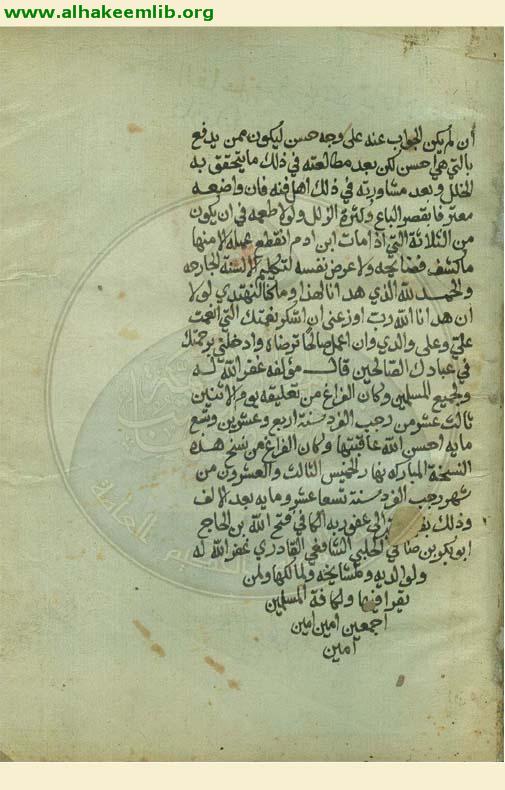 www.alhakeemlib.org
ان لم يكن الجواب عنه على وجه حسن ليكون ممن يدفع
بالتي هي احسن لكن بعد مطالعته في ذلك ما يتحقق به
الخلل وبعد مشاورته في ذلك اهل فنه فان واضعه
معترف بقصر الباع وكثرة الزلل ولولا طمعه في ان يكون
من الثلاثة التي اذا مات ابن ادم انقطع عمله الا منها
ما كشف فضايحه ولا عرض نفسه لتكليم الالسنة الجارحه
والحمد لله الذي هدانا لهذا وما كنا لنهتدي لولا
ان هدانا الله رب اوزعني ان اشكر نعمتك التي انعمت
علي وعلى والدي وان اعمل صالحا ترضاه وادخلني برحمتك
في عبادك الصالحين قال مؤلفه غفر الله له
ولجميع المسلمين وكان الفراغ من تعليقه يوم الاثنين
ثالث عشر من رجب الفرد سنة اربع وعشرين وتسع
مايه احسن الله عاقبتها وكان الفراغ من نسخ هذه
النسخة المباركه نهار الخميس الثالث والعشرون من
شهر رجب الفرد سنة تسعا عشر ومايه بعد الالف
وذلك الى عفو ربه الكافي فتح الله بن الحاج
ابو بكر بن الحلبي الشافعي القادري غفر الله له
ولوالديه ولمشايخه ولمالكها ولمن
يقرا فيها ولكافة المسلمين
اجمعين امين امين
امين